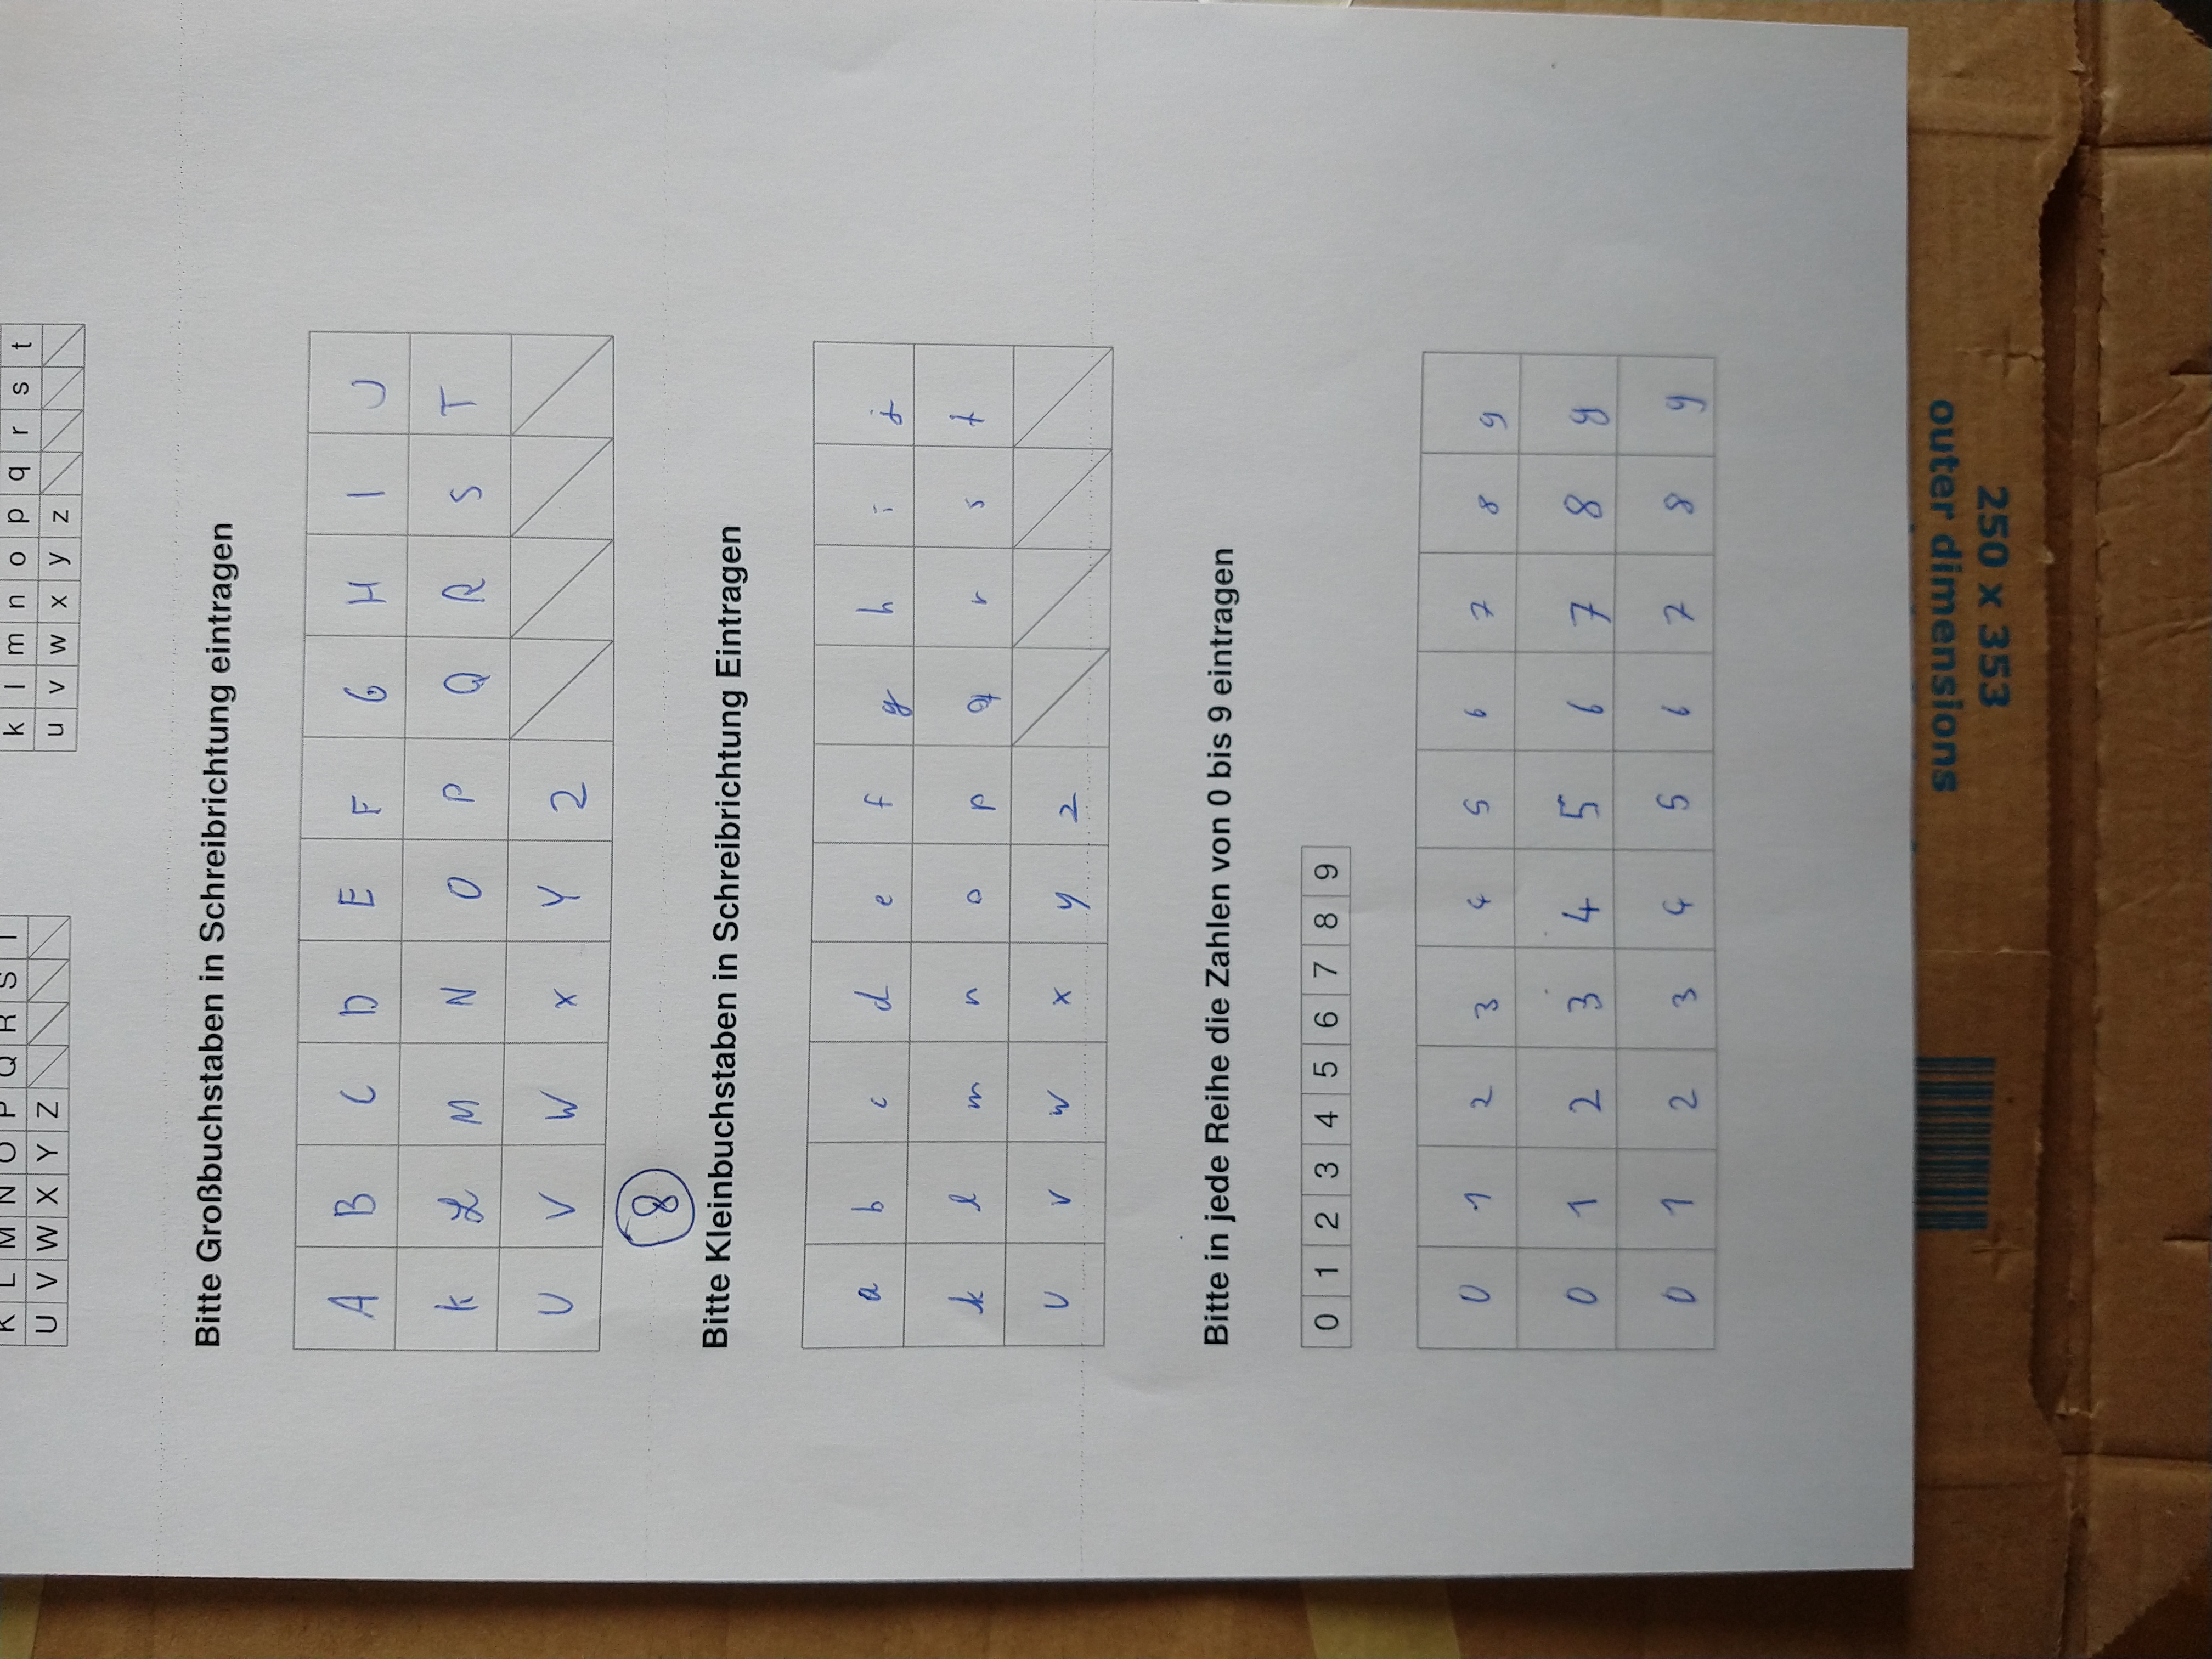 K L M N O P Q R S T
U V W X Y Z
k l m n o p q r s t
u v w x y z
Bitte Großbuchstaben in Schreibrichtung eintragen
A B C D E F G H I J
K L M N O P Q R S T
U V W X Y Z
8
Bitte Kleinbuchstaben in Schreibrichtung Eintragen
a b c d e f g h i j
k l m n o p q r s t
u v w x y z
Bitte in jede Reihe die Zahlen von 0 bis 9 eintragen
0 1 2 3 4 5 6 7 8 9
0 1 2 3 4 5 6 7 8 9
0 1 2 3 4 5 6 7 8 9
0 1 2 3 4 5 6 7 8 9
250 x 353
outer dimensions